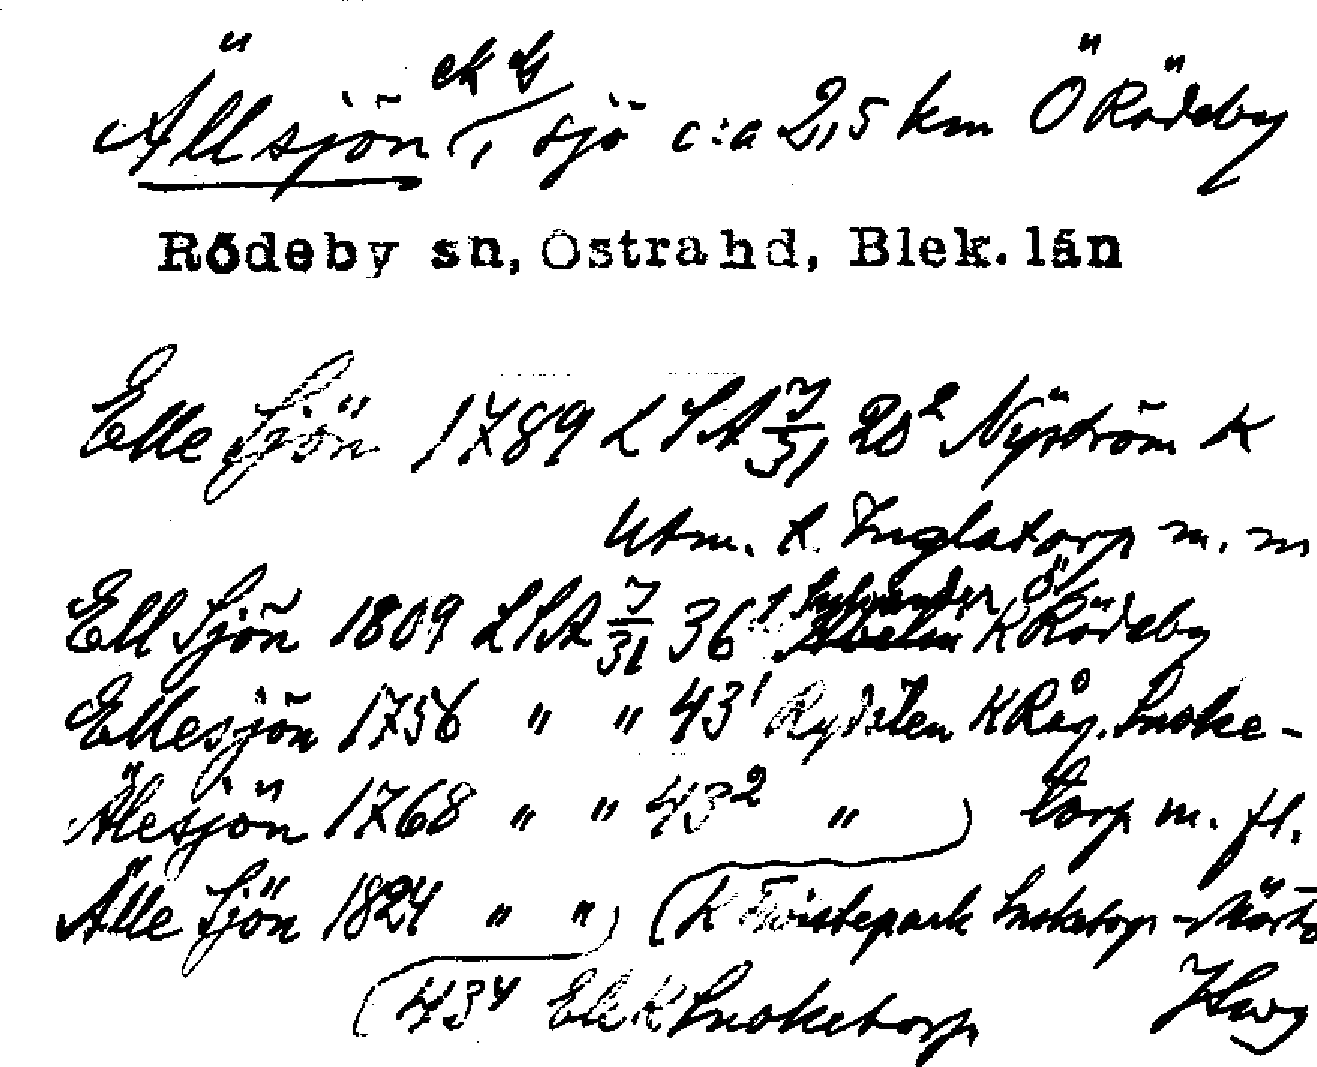 Ällsjön ek G, sjö c:a 2,5 km Ö Rödeby
Rödeby sn, Östra hd, Blek. län
Elle Sjön 1789 LSA 7/31 20² Nyström K
Utm. t. Inglatorp m. m
Ell Sjön 1809 LSA 7/31 36¹ K Rödeby
Ellesjön 1756 " " 43¹ Rydelen K Råg. Snoke-
Älesjön 1768 " " 43² " torp m. fl.
Älle Sjön 1824 " " K Tvistepark Snoketorp
43⁴ Ek K Snoketorp